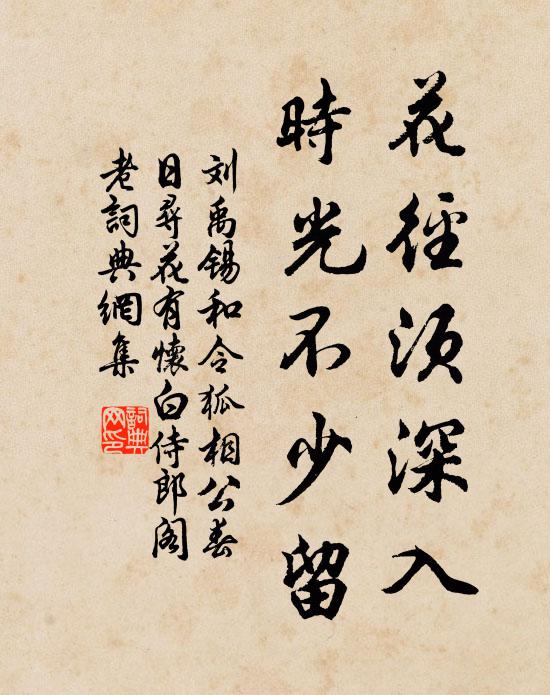 花径须深入
時光不少留
刘禹锡和令狐相公春
日尋花有懷白侍郎阁
老詞典網集
詞典网印